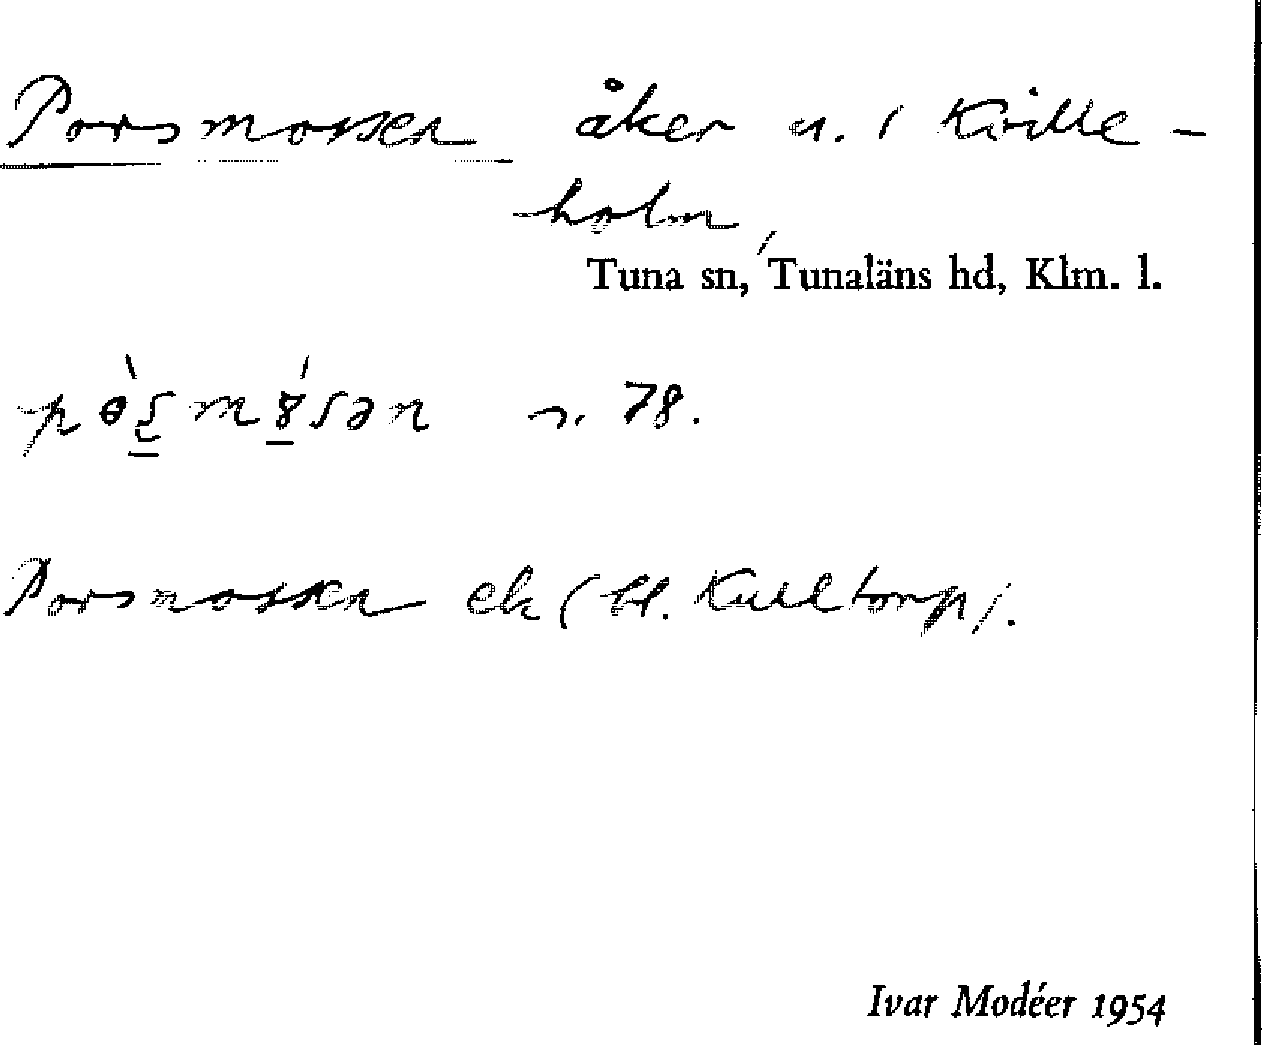 Porsmossen åker n. i Kville-
holm,
Tuna sn, Tunaläns hd, Klm. l.
s. 78.
Porsmossen ek (bl. Kulltorp).
Ivar Modéer 1954